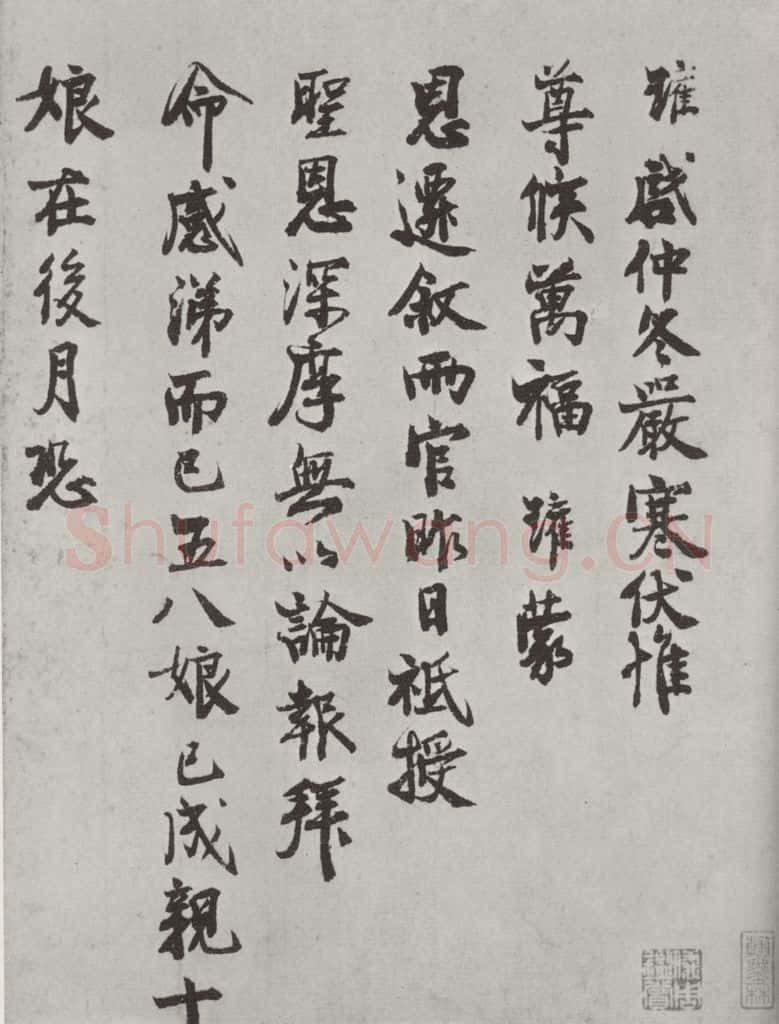 啓仲冬嚴寒伏惟
尊候萬福 蒙
恩遷敘兩官昨日祗授
聖恩深厚無以論報拜
命感涕而已五八娘已成親十
娘在後月恐
Shufawang.CN